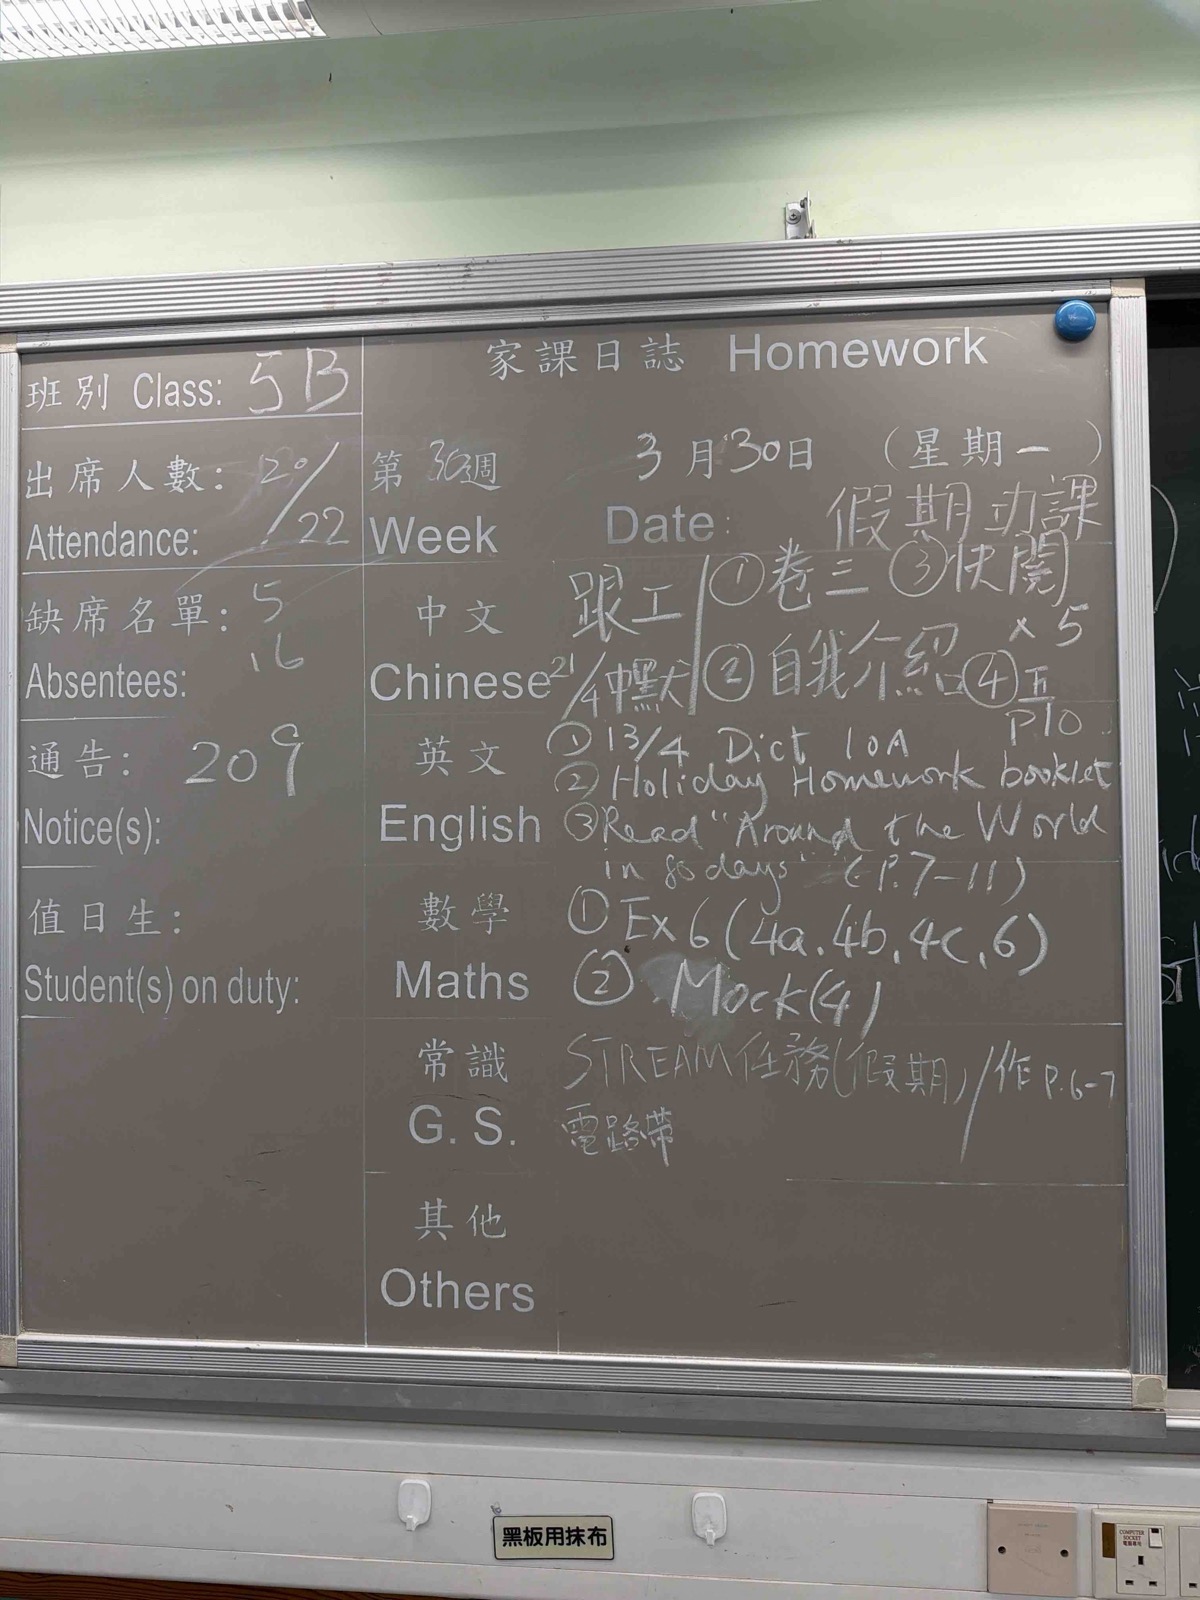 家課日誌 Homework
班別 Class: 5B
出席人數: 20/22
Attendance:
缺席名單: 5
16
Absentees:
通告: 209
Notice(s):
值日生:
Student(s) on duty:
第30週 3月30日 (星期一)
Week Date: 假期功課
中文 跟工 ①卷三 ③快閱
×5
Chinese 21/4 中默 ②自我介紹 ④五
P10
英文 ①13/4 Dict 10A
②Holiday Homework booklet
English ③Read "Around the World
in 80 days" (P.7-11)
數學 ①Ex 6 (4a, 4b, 4c, 6)
Maths ② Mock(4)
常識 STREAM任務(假期)/作 P.6-7
G. S. 電路帶
其他
Others
黑板用抹布
COMPUTER
SOCKET